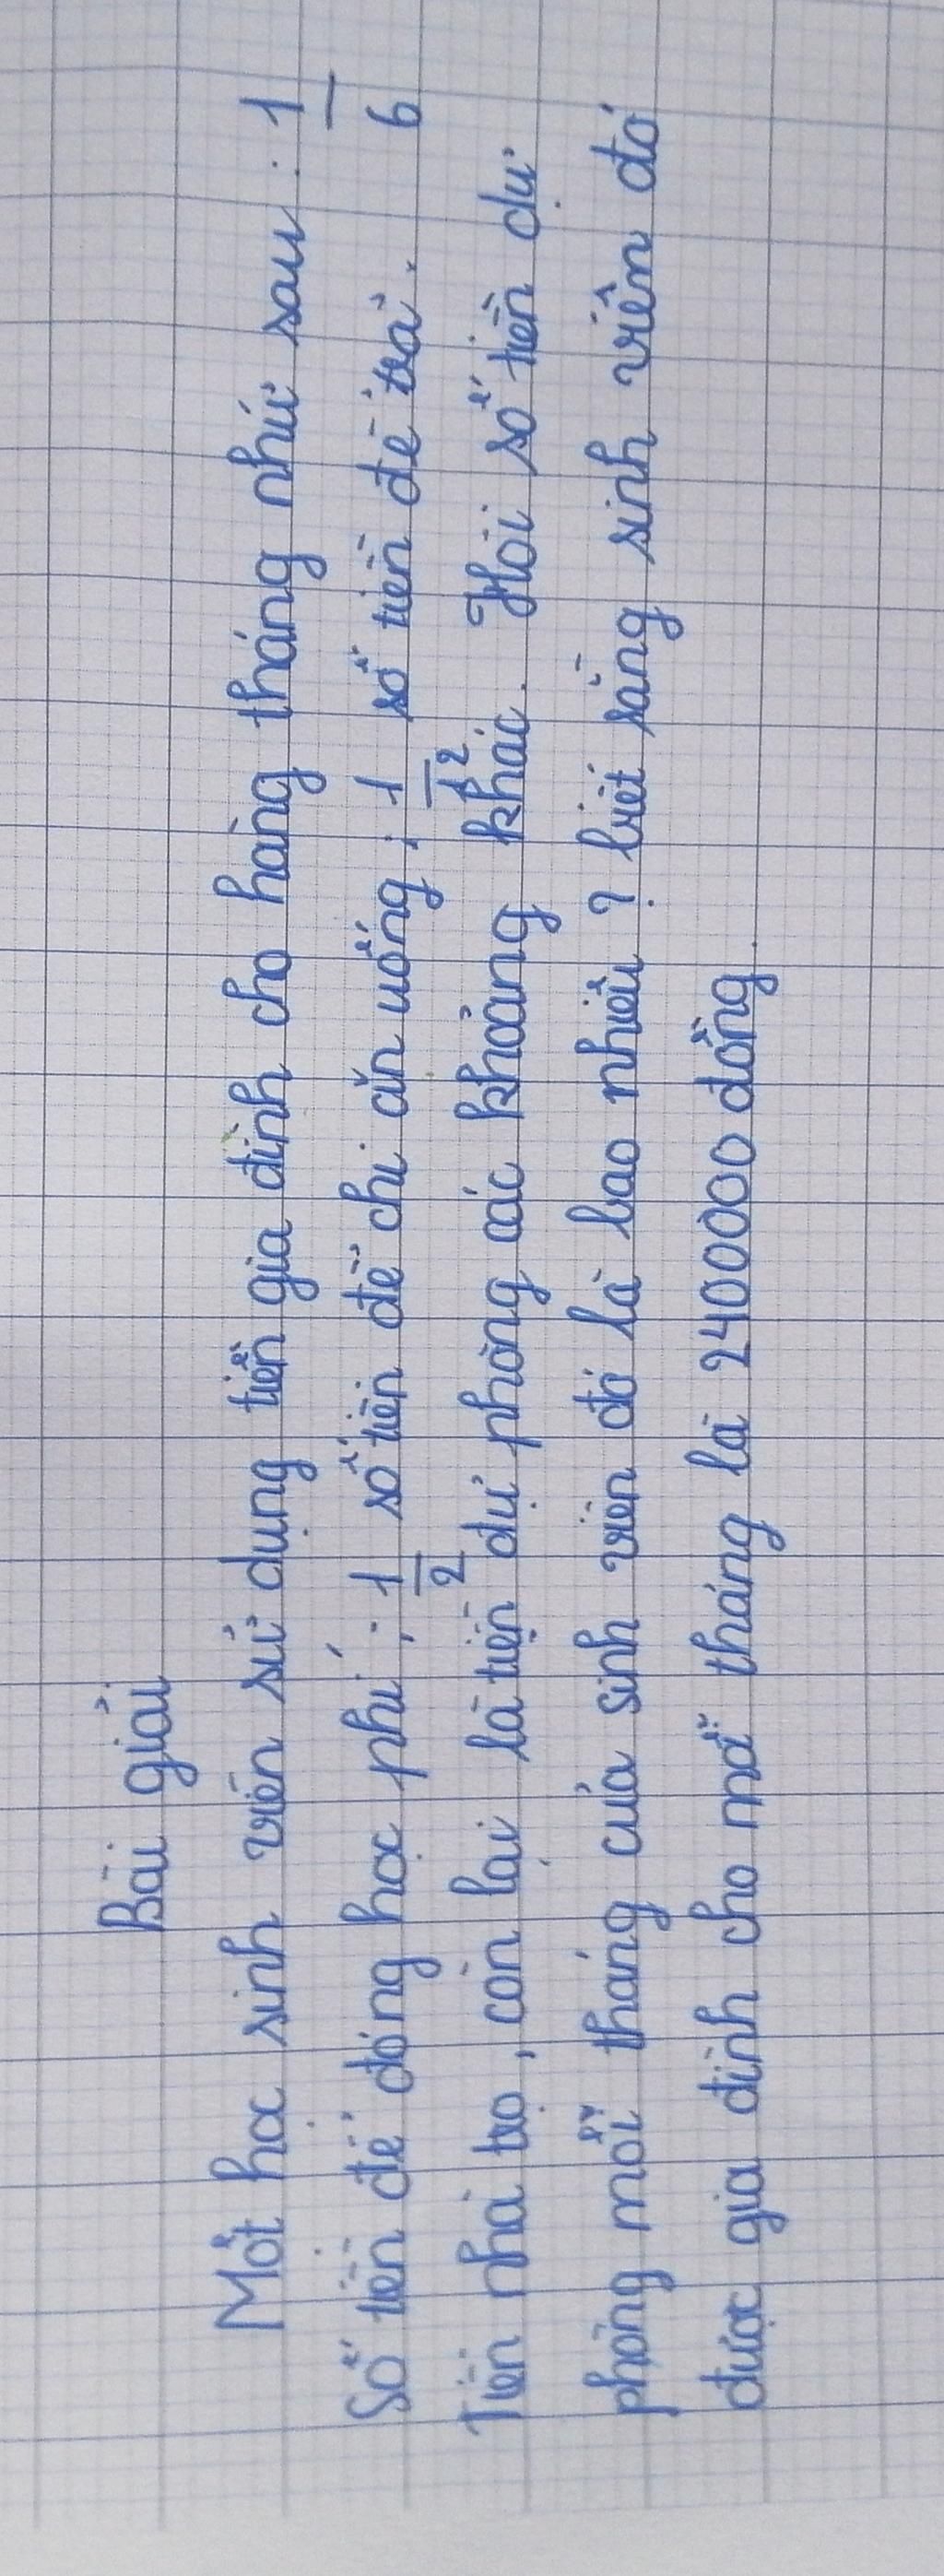 Bài giải
Một học sinh viên sử dụng tiền gia đình cho hàng tháng như sau : 1/6
Số tiền để đóng học phí ; 1/2 số tiền để chi ăn uống ; 1/12 số tiền để trả.
Tiền nhà trọ , còn lại là tiền dự phòng các khoảng khác. Hỏi số tiền dự
phòng mỗi tháng của sinh viên đó là bao nhiêu ? biết rằng sinh viên đó
được gia đình cho mỗi tháng là 2400000 đồng.